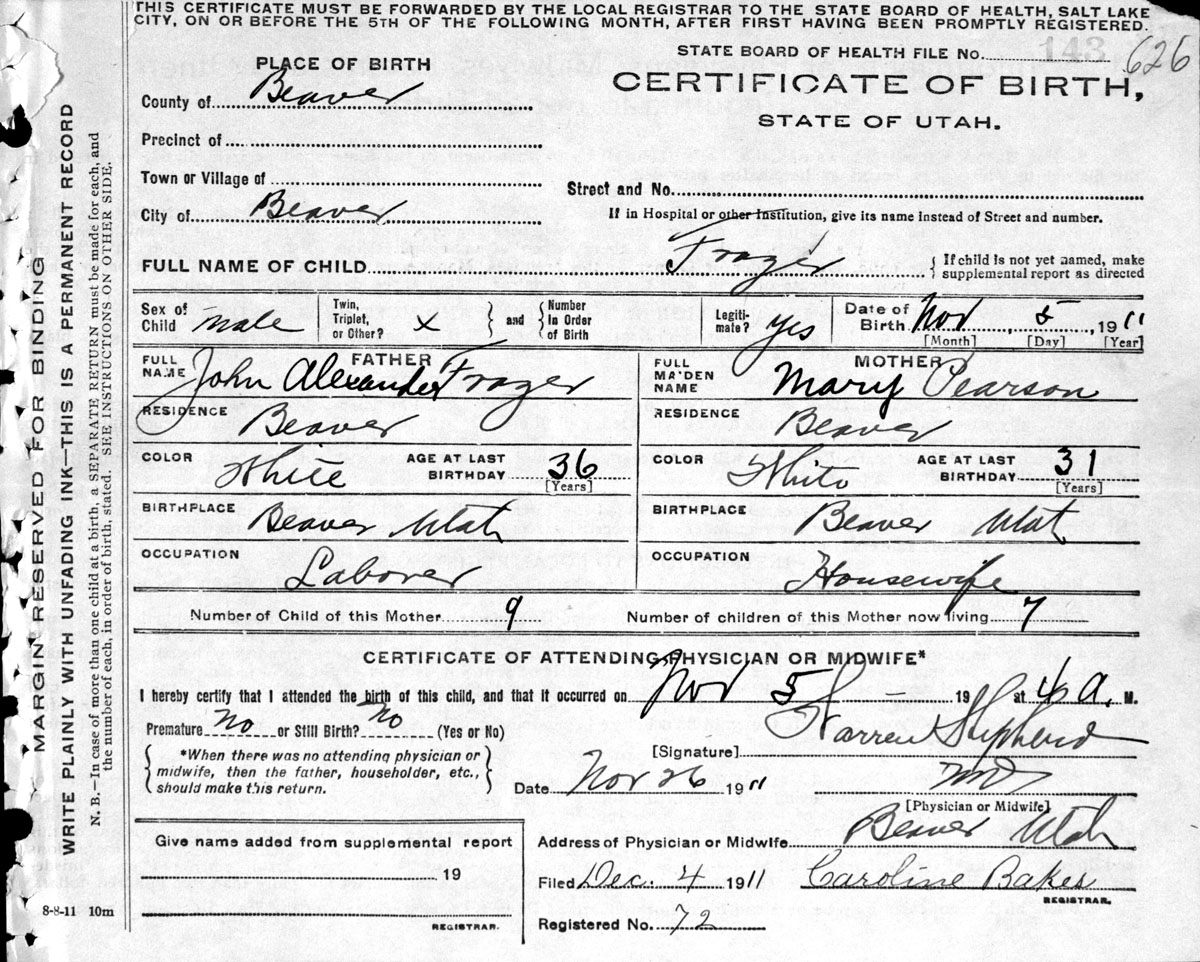 THIS CERTIFICATE MUST BE FORWARDED BY THE LOCAL REGISTRAR TO THE STATE BOARD OF HEALTH, SALT LAKE
CITY, ON OR BEFORE THE 5TH OF THE FOLLOWING MONTH, AFTER FIRST HAVING BEEN PROMPTLY REGISTERED.
STATE BOARD OF HEALTH FILE No. 143 626
PLACE OF BIRTH
CERTIFICATE OF BIRTH,
STATE OF UTAH.
County of Beaver
Precinct of
Town or Village of
Street and No.
City of Beaver
If in Hospital or other Institution, give its name instead of Street and number.
FULL NAME OF CHILD Frazer { If child is not yet named, make supplemental report as directed
Sex of Child male
Twin, Triplet, or Other? x } and { Number In Order of Birth
Legiti-mate? yes
Date of Birth Nov, 5, 1911
[Month] [Day] [Year]
FATHER
FULL NAME John Alexander Frazer
MOTHER
FULL MAIDEN NAME Mary Pearson
RESIDENCE Beaver
RESIDENCE Beaver
COLOR White AGE AT LAST BIRTHDAY 36 [Years]
COLOR White AGE AT LAST BIRTHDAY 31 [Years]
BIRTHPLACE Beaver Utah
BIRTHPLACE Beaver Utah
OCCUPATION Laborer
OCCUPATION Housewife
Number of Child of this Mother 9 Number of children of this Mother now living 7
CERTIFICATE OF ATTENDING PHYSICIAN OR MIDWIFE*
I hereby certify that I attended the birth of this child, and that it occurred on Nov 5 19 at 4 a. M.
Premature no or Still Birth? no (Yes or No)
[Signature] Warren Shepherd
*When there was no attending physician or
midwife, then the father, householder, etc.,
should make this return.
Date Nov 26 1911 MD
[Physician or Midwife]
Address of Physician or Midwife Beaver Utah
Give name added from supplemental report
19
REGISTRAR.
Filed Dec. 4 1911 Caroline Bakes
REGISTRAR.
Registered No. 72
8-8-11 10m
MARGIN RESERVED FOR BINDING
WRITE PLAINLY WITH UNFADING INK—THIS IS A PERMANENT RECORD
N. B.—In case of more than one child at a birth, a SEPARATE RETURN must be made for each, and
the number of each, in order of birth, stated. SEE INSTRUCTIONS ON OTHER SIDE.